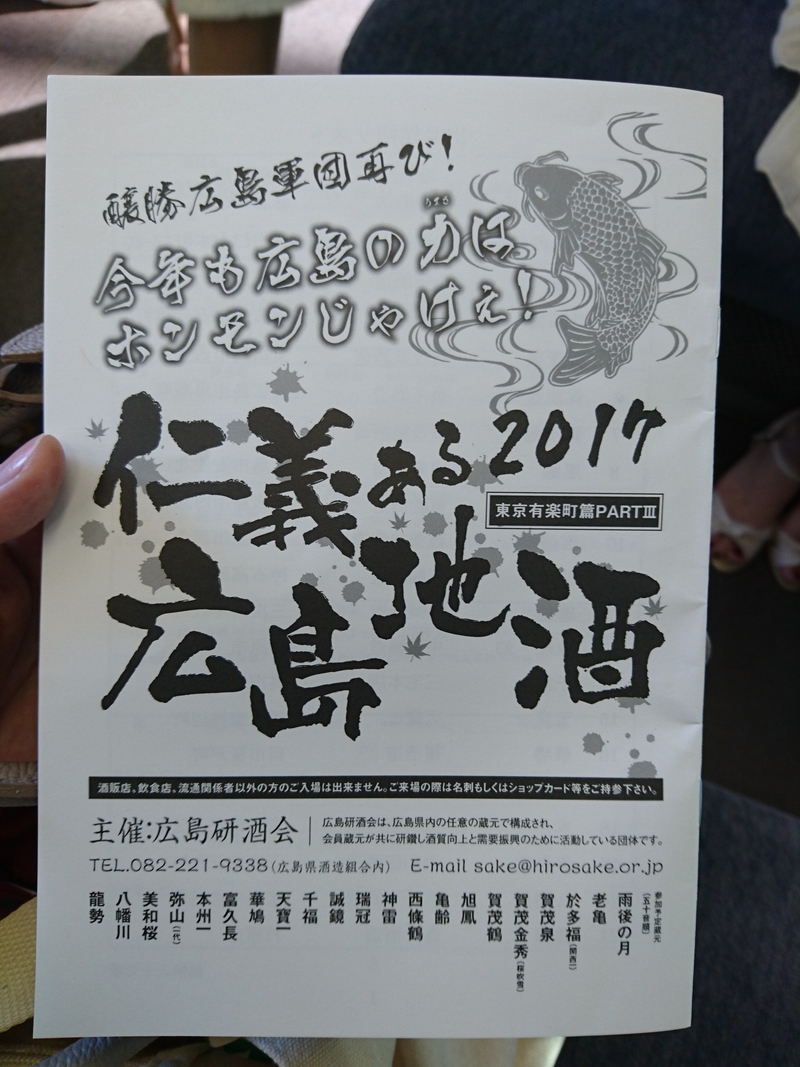 醸勝広島軍団再び!
今年も広島の力は
うまさ
ホンモンじゃけぇ!
仁義ある2017
東京有楽町篇PARTⅢ
広島地酒
酒販店、飲食店、流通関係者以外の方のご入場は出来ません。ご来場の際は名刺もしくはショップカード等をご持参下さい。
主催:広島研酒会
広島研酒会は、広島県内の任意の蔵元で構成され、
会員蔵元が共に研鑽し酒質向上と需要振興のために活動している団体です。
TEL.082-221-9338(広島県酒造組合内) E-mail sake@hirosake.or.jp
参加予定蔵元
(五十音順)
雨後の月
老亀
於多福(関西一)
賀茂泉
賀茂金秀(桜吹雪)
賀茂鶴
旭鳳
亀齢
西條鶴
神雷
瑞冠
誠鏡
千福
天寶一
華鳩
富久長
本州一
弥山(一代)
美和桜
八幡川
龍勢